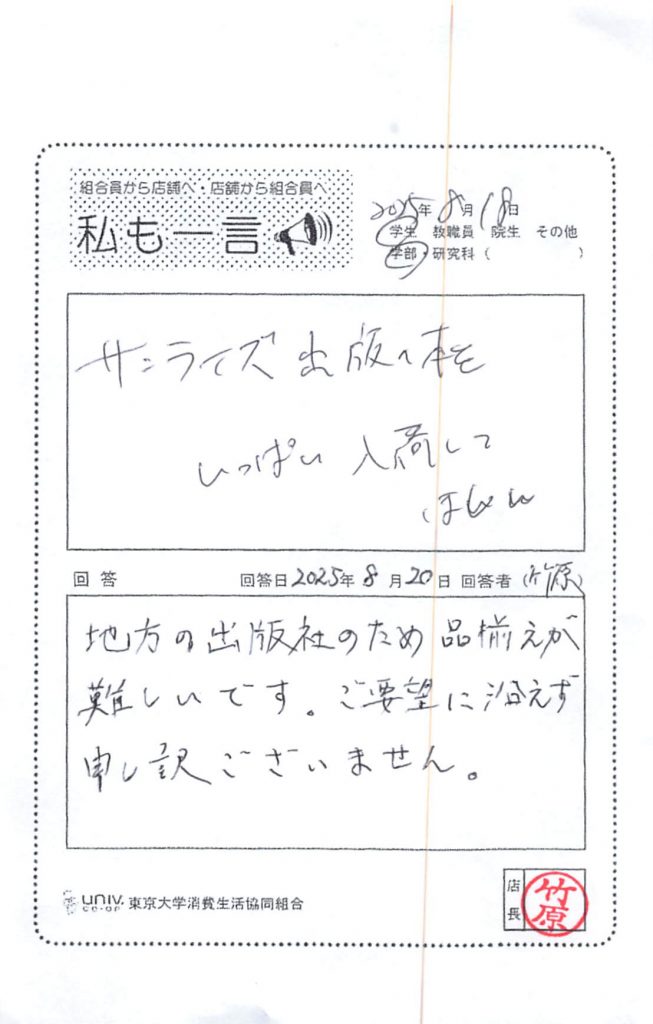 組合員から店舗へ・店舗から組合員へ
私も一言
2025年8月18日
学生 教職員 院生 その他
学部・研究科( )
サンライズ出版の本を
いっぱい入荷して
ほしい
回答 回答日2025年8月20日 回答者(竹原)
地方の出版社のため品揃えが
難しいです。ご要望に沿えず
申し訳ございません。
univ. 東京大学消費生活協同組合
co-op
店長
竹原